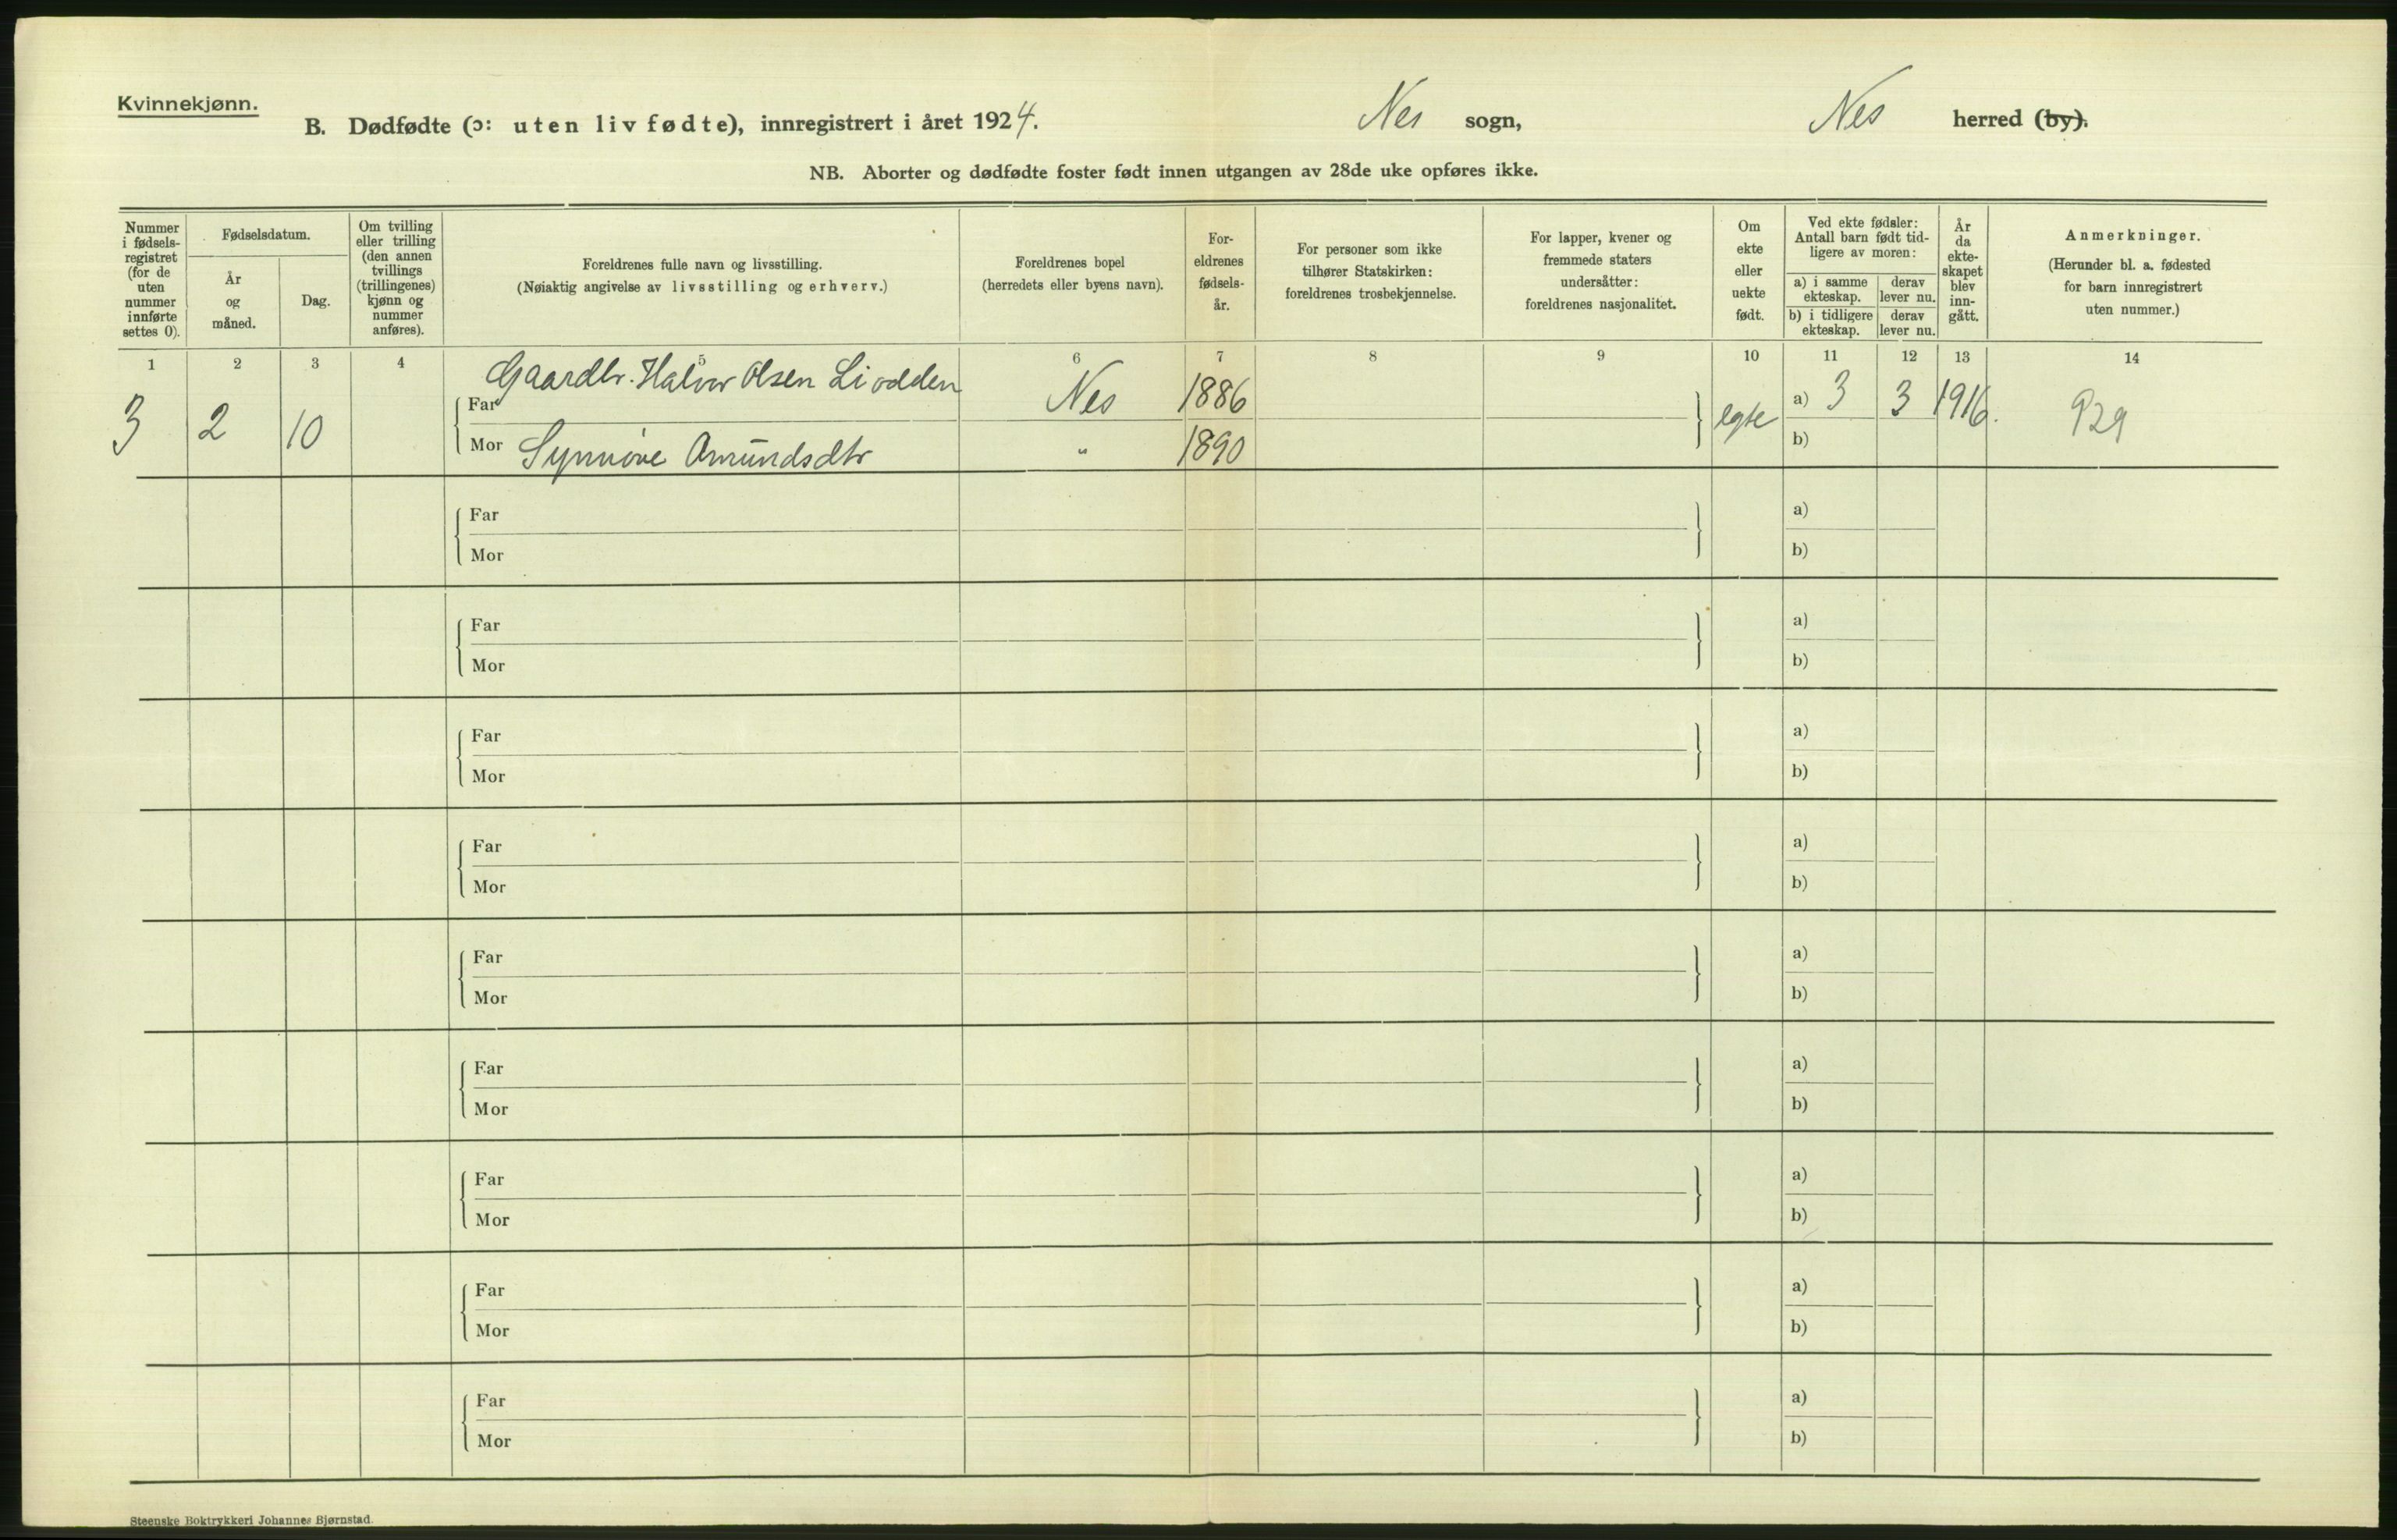 Kvinnekjønn.
B. Dødfødte (ɔ: uten liv fødte), innregistrert i året 1924. Nes sogn, Nes herred (by).
NB. Aborter og dødfødte foster født innen utgangen av 28de uke opføres ikke.
Nummer i fødsels-registret (for de uten nummer innførte settes 0).
Fødselsdatum.
År og måned.
Dag.
Om tvilling eller trilling (den annen tvillings (trillingenes) kjønn og nummer anføres).
Foreldrenes fulle navn og livsstilling.
(Nøiaktig angivelse av livsstilling og erhverv.)
Foreldrenes bopel
(herredets eller byens navn).
For-eldrenes fødsels-år.
For personer som ikke tilhører Statskirken: foreldrenes trosbekjennelse.
For lapper, kvener og fremmede staters undersåtter: foreldrenes nasjonalitet.
Om ekte eller uekte født.
Ved ekte fødsler: Antall barn født tid-ligere av moren:
a) i samme ekteskap. derav lever nu.
b) i tidligere ekteskap. derav lever nu.
År da ekte-skapet blev inn-gått.
Anmerkninger.
(Herunder bl. a. fødested for barn innregistrert uten nummer.)
1 2 3 4 5 6 7 8 9 10 11 12 13 14
3 2 10 Far Gaardbr. Halvor Olsen Liodden Nes 1886 egte a) 3 3 1916.
Mor Synnøve Amundsdtr " 1890 b)
Far a)
Mor b)
Far a)
Mor b)
Far a)
Mor b)
Far a)
Mor b)
Far a)
Mor b)
Far a)
Mor b)
Far a)
Mor b)
Far a)
Mor b)
Far a)
Mor b)
Steenske Boktrykkeri Johannes Bjørnstad.